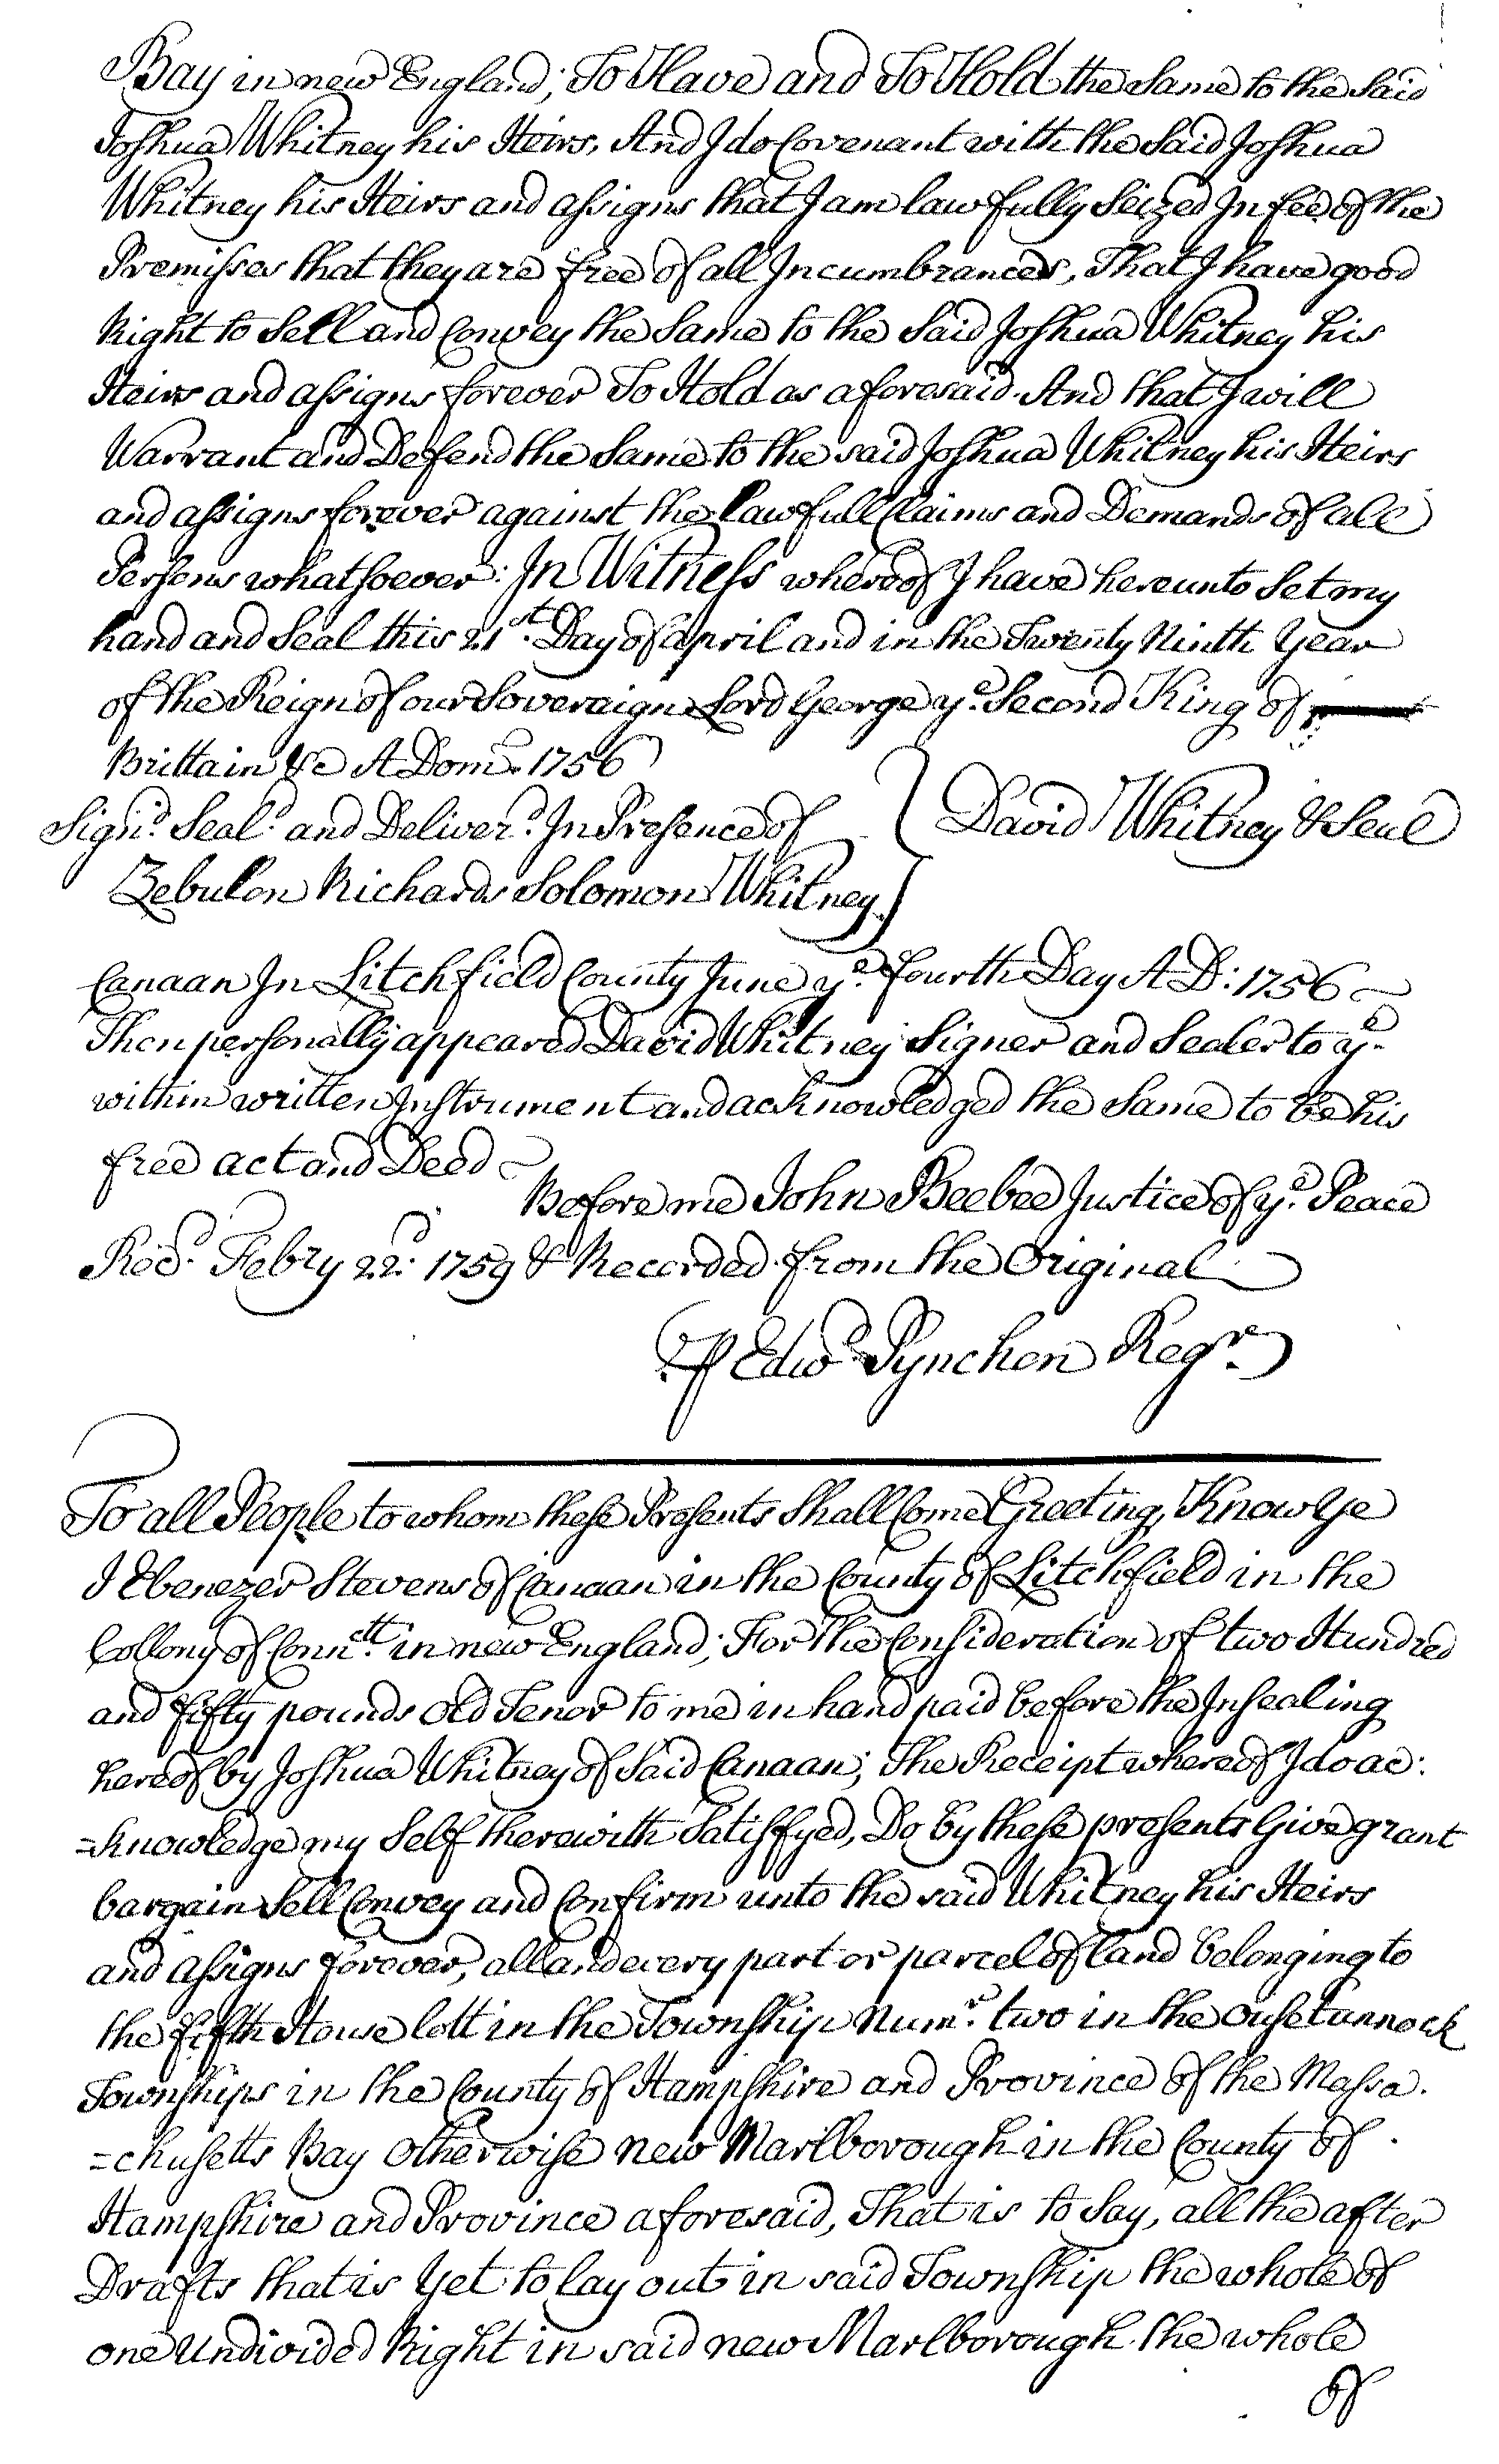 Bay in new England; To Have and To Hold the Same to the Said
Joshua Whitney his Heirs, And I do Covenant with the Said Joshua
Whitney his Heirs and assigns that I am lawfully Seized In fee of the
Premisses that they are free of all Incumbrances, That I have good
Right to Sell and Convey the Same to the Said Joshua Whitney his
Heirs and assigns forever To Hold as aforesaid. And that I will
Warrant and Defend the Same to the said Joshua Whitney his Heirs
and assigns forever against the Lawfull Claims and Demands of all
Persons whatsoever: In Witness whereof I have hereunto Set my
hand and Seal this 21st. Day of april and in the Twenty Ninth Year
of the Reign of our Soveraign Lord George ye. Second King of
Brittain &c A Dom. 1756
Signd. Seald. and Deliverd. In Presence of } David Whitney & Seal
Zebulon Richards Solomon Whitney }
Canaan In Litchfield County June ye. fourth Day A D: 1756
Then personally appeared David Whitney Signer and Sealer to ye.
within written Instrument and acknowledged the Same to be his
free act and Deed
Before me John Beebee Justice of ye. Peace
Recd. Febry 22d. 1759 & Recorded from the Original
P Edwd. Pynchon Regr.
To all People to whom these Presents Shall Come Greeting, Know Ye
I Ebenezer Stevens of Canaan in the County of Litchfield in the
Collony of Connctt. in new England; For the Consideration of two Hundred
and fifty pounds Old Tenor to me in hand paid before the Insealing
hereof by Joshua Whitney of Said Canaan; The Receipt whereof I do ac:
=knowledge my Self therewith Satisfyed, Do by these presents Give grant
bargain Sell Convey and Confirm unto the said Whitney his Heirs
and assigns forever, all and every part or parcel of land belonging to
the fifth House lott in the Township Numr. two in the Ousetannock
Townships in the County of Hampshire and Province of the Massa.
=chusetts Bay Otherwise new Marlborough in the County of
Hampshire and Province aforesaid, That is to Say, all the after
Drafts that is Yet to lay out in said Township the whole of
one Undivided Right in said new Marlborough the whole
of